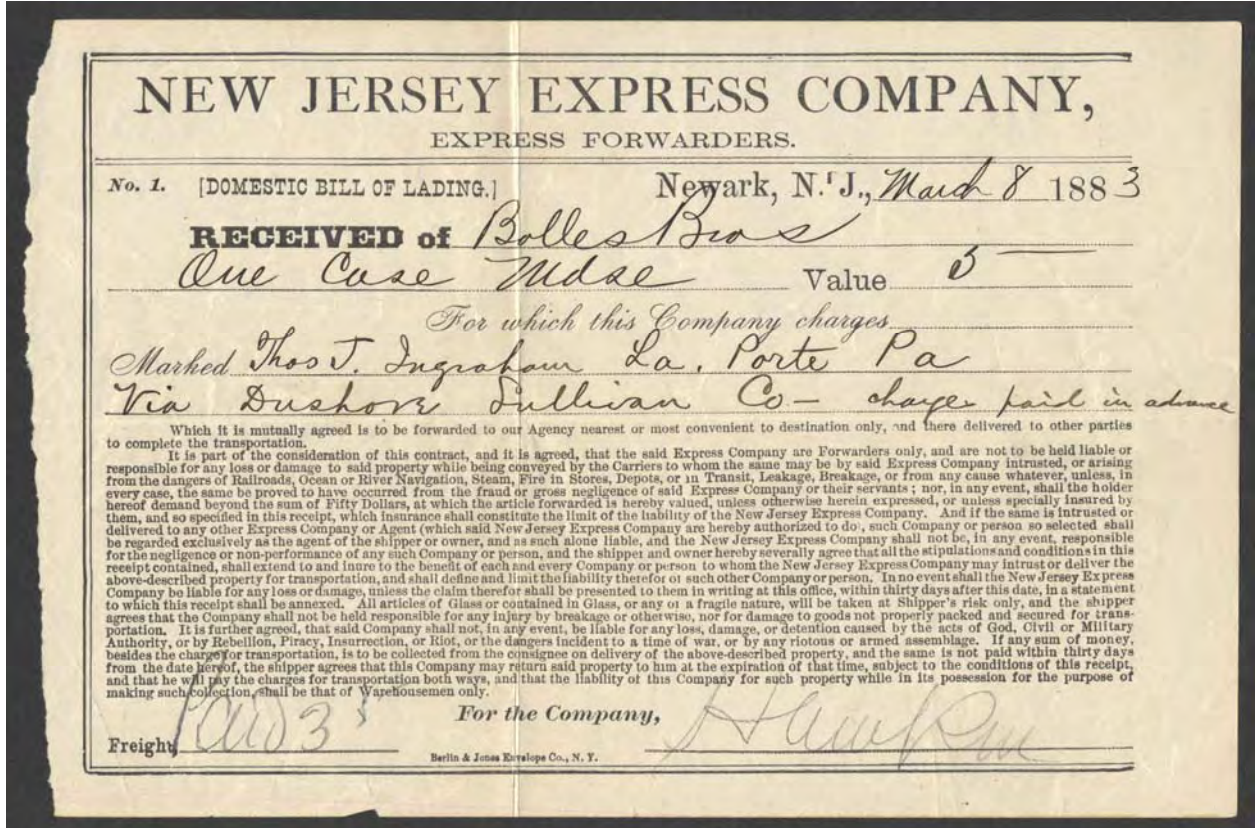 NEW JERSEY EXPRESS COMPANY,
EXPRESS FORWARDERS.
No. 1. [DOMESTIC BILL OF LADING.] Newark, N. J., March 8 1883
RECEIVED of Bolles Bros
One Case Mdse Value 5
For which this Company charges
Marked Thos J. Ingraham La. Porte Pa
Via Dushore Sullivan Co – charges paid in advance
Which it is mutually agreed is to be forwarded to our Agency nearest or most convenient to destination only, and there delivered to other parties
to complete the transportation.
It is part of the consideration of this contract, and it is agreed, that the said Express Company are Forwarders only, and are not to be held liable or
responsible for any loss or damage to said property while being conveyed by the Carriers to whom the same may be by said Express Company intrusted, or arising
from the dangers of Railroads, Ocean or River Navigation, Steam, Fire in Stores, Depots, or in Transit, Leakage, Breakage, or from any cause whatever, unless, in
every case, the same be proved to have occurred from the fraud or gross negligence of said Express Company or their servants ; nor, in any event, shall the holder
hereof demand beyond the sum of Fifty Dollars, at which the article forwarded is hereby valued, unless otherwise herein expressed, or unless specially insured by
them, and so specified in this receipt, which insurance shall constitute the limit of the liability of the New Jersey Express Company. And if the same is intrusted or
delivered to any other Express Company or Agent (which said New Jersey Express Company are hereby authorized to do), such Company or person so selected shall
be regarded exclusively as the agent of the shipper or owner, and as such alone liable, and the New Jersey Express Company shall not be, in any event, responsible
for the negligence or non-performance of any such Company or person, and the shipper and owner hereby severally agree that all the stipulations and conditions in this
receipt contained, shall extend to and inure to the benefit of each and every Company or person to whom the New Jersey Express Company may intrust or deliver the
above-described property for transportation, and shall define and limit the liability therefor of such other Company or person. In no event shall the New Jersey Express
Company be liable for any loss or damage, unless the claim therefor shall be presented to them in writing at this office, within thirty days after this date, in a statement
to which this receipt shall be annexed. All articles of Glass or contained in Glass, or any of a fragile nature, will be taken at Shipper's risk only, and the shipper
agrees that the Company shall not be held responsible for any injury by breakage or otherwise, nor for damage to goods not properly packed and secured for trans-
portation. It is further agreed, that said Company shall not, in any event, be liable for any loss, damage, or detention caused by the acts of God, Civil or Military
Authority, or by Rebellion, Piracy, Insurrection, or Riot, or the dangers incident to a time of war, or by any riotous or armed assemblage. If any sum of money,
besides the charge for transportation, is to be collected from the consignee on delivery of the above-described property, and the same is not paid within thirty days
from the date hereof, the shipper agrees that this Company may return said property to him at the expiration of that time, subject to the conditions of this receipt,
and that he will pay the charges for transportation both ways, and that the liability of this Company for such property while in its possession for the purpose of
making such collection, shall be that of Warehousemen only.
For the Company,
Freight, Paid
Berlin & Jones Envelope Co., N. Y.